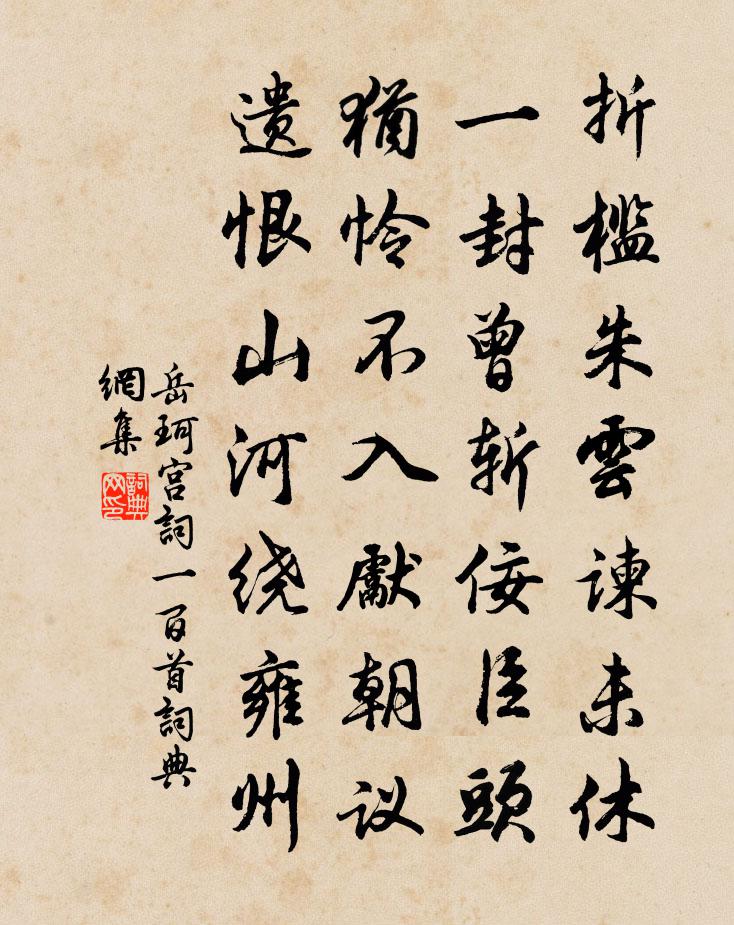 折檻朱雲諫未休
一封曾斬佞臣頭
猶怜不入獻朝议
遗恨山河绕雍州
岳珂宫詞一百首詞典
網集
詞典
网印